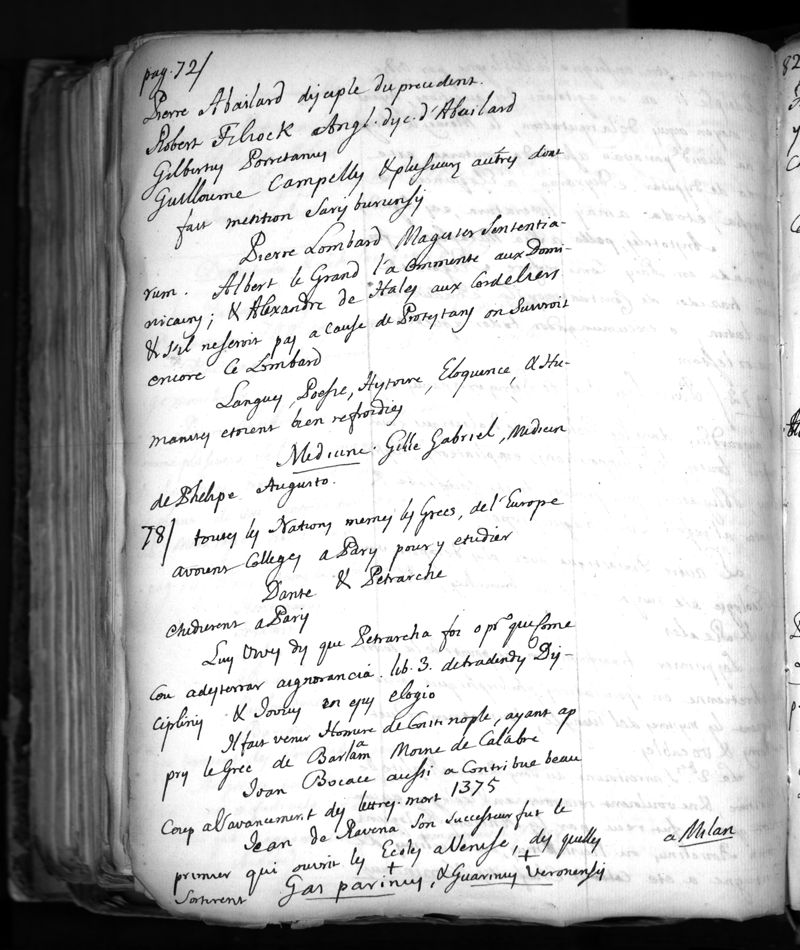 pag. 72/
Pierre Abailard disciple du precedent.
Robert Filiock Angl. dyc. d'Abailard
Gilbertus Porretanus
Guilloume Campelly & plusieurs autres dont
fait mention Sarisburiensis
Pierre Lombard Magister Sententia-
rum. Albert le Grand l'a Commenté aux Domi-
nicains; & Alexandre de Hales aux Cordeliers
& s'il neseroit pas a Cause de Protestans on Suivroit
encore Ce Lombard
Langues, Poesie, Hystoire, Eloquence, & Hu-
manites etoient bien refroidies
Medicine. Gille Gabriel, Medicin
de Phelipe Augusto.
78/ toutes les Nations memes les Grecs, de l'Europe
avoient Colleges a Paris pour y etudier
Dante & Petrarche
etudierent a Paris
Luis Vives dis que Petrarcha foi o pro que Come
Cou a desterrar a ignorancia. lib. 3. de tradendis Dis-
ciplinis & Jovius en ejus elogio
Il fait venir Homere de Constinople, ayant ap
pris le Grec de Barlaam Moine de Calabre
Joan Bocace aussi a Contribue beau
Coup a l'avancement des lettres. mort 1375
Jean de Ravena Son Successeur fut le
primier qui ouvrit les Ecoles a Venise, des quelles a Milan
Sortirent Gasparinus, & Guarinus Veronensis